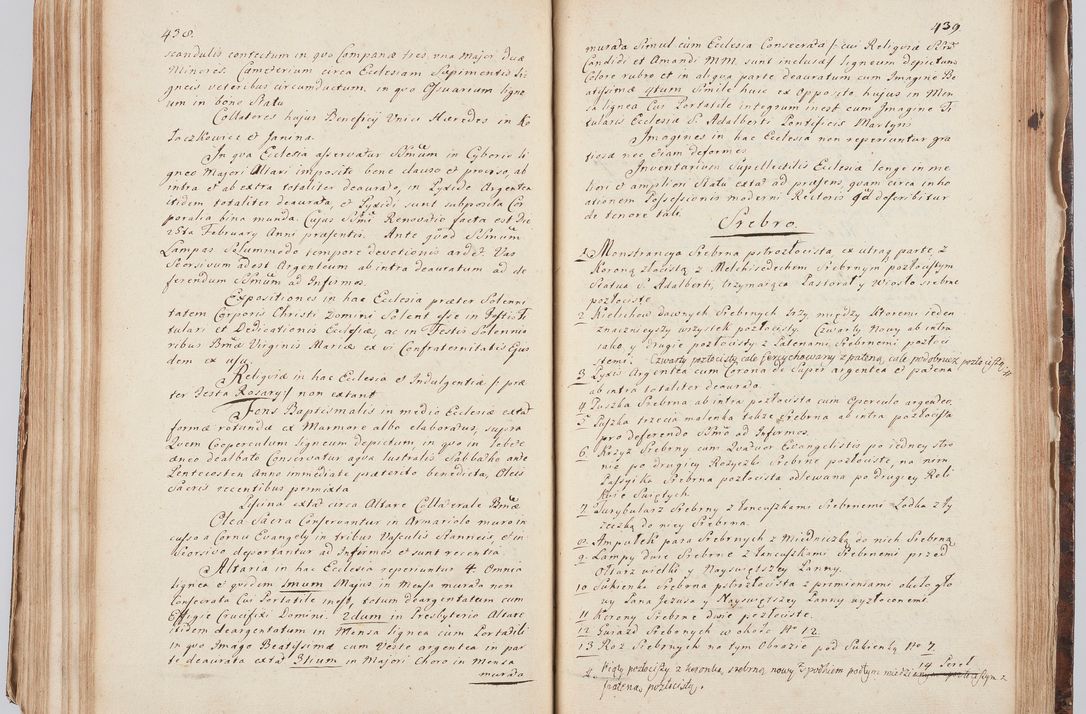 438.
scandulis contectum in quo Campanæ tres una Major duæ
Minores. Cæmeterium circa Ecclesiam Sepimentis li
gneis veteribus circumductum, in quo Ossuarium ligne
um in bono Statu
Collatores hujus Beneficij Unici Hæredes in Ko
Janina.
In qua Ecclesia asservatur SSmum in Cyborio li
gneo Majori Altari imposito bene clauso et proviso, ab
intra et ab extra totaliter deaurato, in Pyxide Argentea
itidem totaliter deaurata, et Pyxidi sunt supposita Cor
poralia bina munda. Cujus SSmi Renovatio facta est Die
25ta February Anni præsentis. Ante quod SSmum
Lampas solummodo tempore devotionis ardet. Vas
Seorsivum adest Argenteum ab intra deauratum ad de
ferendum SSmum ad Infirmos.
Expositiones in hac Ecclesia præter Solenni
tatem Corporis Christi Domini Solent esse in Festis Ti
tulari et Dedicationis Ecclesiæ, ac in Festis Solennio
ribus Bmæ Virginis Mariæ ex vi Confraternitatis Ejus
dem ex usu.
Reliquiæ in hac Ecclesia et Indulgentiæ / præ
ter Festa Rosarij / non extant
Fons Baptismalis in medio Ecclesiæ extat
formæ rotundæ ex Marmore albo elaboratus, supra
Quem Cooperculum ligneum depictum in quo in Lebete
æneo dealbato Conservatur aqua lustralis Sabbatho ante
Pentecosten Anno immediate præterito benedicta, Oleis
Sacris recentibus permixta
Piscina extat circa Altare Collaterale Bmæ
Olea Sacra Conservantur in Armariolo muro in
cusso a Cornu Evangely in tribus Vasculis Stanneis, et in
Seorsivo deportantur ad Infirmos et sunt recentia.
Altaria in hac Ecclesia reperiuntur 4. Omnia
lignea et quidem 1mum Majus in Mensa murata non
Consecrata Cui Portatile inest, totum deargentatum cum
Effigie Crucifixi Domini. 2dum in Presbyterio Altare
itidem deargentatum in Mensa lignea cum Portatili
in quo Imago Beatissimæ cum Veste argentea in par
te deaurata extat 3tium in Majori Choro in Mensa
murata
439
murata Simul cum Ecclesia Consecrata / cui Reliquiæ SSrum
Candidi et Amandi MM. sunt inclusæ / ligneum depictum
Colore rubro et in aliqua parte deauratum cum Imagine Be
atissimæ 4tum Simile huic ex opposito hujus in Men
sa lignea Cui Portatile integrum inest cum Imagine Ti
tularis Ecclesiæ S. Adalberti Pontificis Martyris
Imagines in hac Ecclesia non reperiuntur gra
tiosæ nec etiam deformes.
Inventarium Supellectilis Ecclesiæ longe in me
liori et ampliori Statu extat ad præsens, quam circa inho
ationem Possessionis moderni Rectoris qd describitur
de tenore tali.
Srebro.
1. Monstrancya Srebrna pstrozłocista, ex utraq parte, z
Koroną złocistą z Melchisedechem Srebrnym pozłocistym
Statua S. Adalberti, trzymaiąca Pastorał y Wiosło srebrne
pozłociste
2 Kielichow dawnych Srebrnych trzy między ktoremi ieden
znacznieyszy wszystek pozłocisty. Czwarty Nowy ab intra
iako y drugie pozłocisty z Patenami Srebrnemi pozłoci
stemi. Czwarty pozłocisty cale z pateną cale podobnież pozłocistą.
3 Pyxis Argentea cum Corona de Super argentea et patena
ab intra totaliter deaurato.
4 Puszka Srebrna ab intra pozłocista cum Operculo argenteo.
5 Puszka trzecia malenka także Srebrna ab intra pozłocista
pro deferendo SSmo ad Infirmos.
6 Krzyż Srebrny cum Quatuor Evangelistis po iedney stro
nie po drugiey Rożyczki Srebrne pozłociste, na nim
Passyika Srebrna pozłocista odlewana po drugiey Reli
kwie Swiętych.
7 Turybularz Srebrny z łancuszkami Srebrnemi Łodka z ły
żeczką do niey Srebrna.
8 Ampułek para Srebrnych z Miedniczką do nich Srebrną
9 Lampy dwie Srebrne z łancuszkami Srebrnemi przed
Ołtarz wielki y Nayswiętszey Panny.
10 Sukienka Srebrna pstrozłocista z promieniami około gło
wy Pana Jezusa y Nayswiętszey Panny wyzłoconemi
11 Korony Srebrne dwie pozłociste.
12 Gwiazd Srebrnych w około No 12.
13 Roż Srebrnych na tym Obrazie pod Sukienką No 7.
14 Pereł
4. pozłocisty z koronką srebrną nowy z spodkiem podtym miedzianym pozłocistym z
pateną pozłocistą.